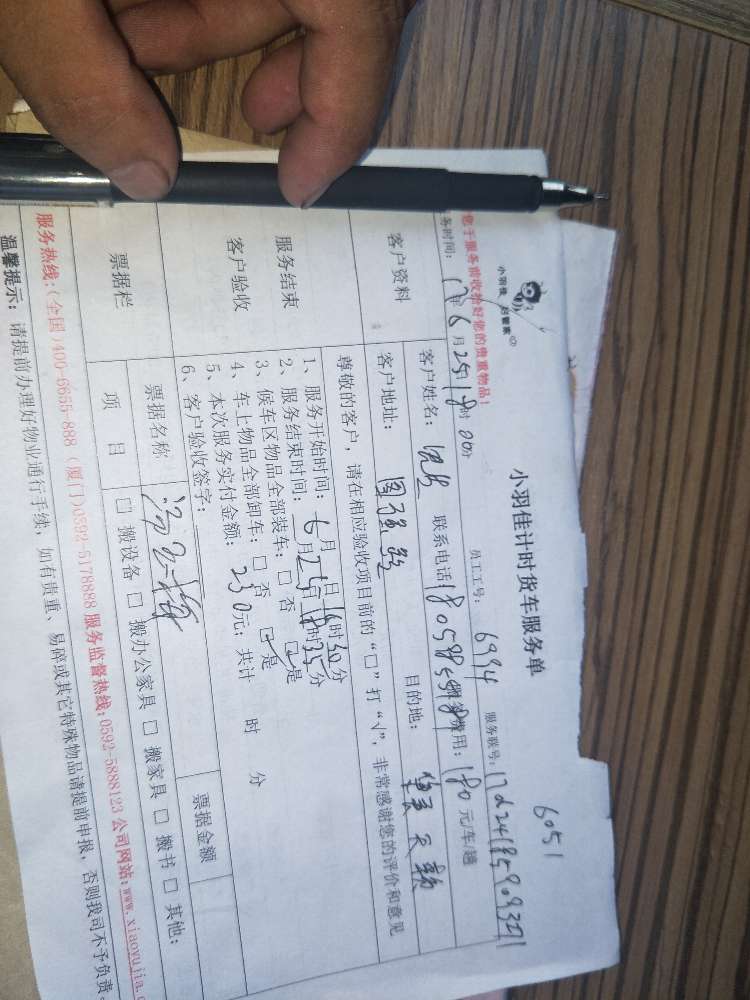 小羽佳 好管家
小羽佳计时货车服务单
6051
您于服务前收拾好您的贵重物品!
务时间: 17年6月25日18时00分 员工工号: 6994 服务账号:
客户资料
客户姓名: 联系电话 费用: 180 元/车/趟
客户地址: 目的地:
服务结束
客户验收
尊敬的客户, 请在相应验收项目前的“□”打“√”, 非常感谢您的评价和意见
1、服务开始时间: 月 日 时30分
2、服务结束时间: 6月25日18时35分
3、候车区物品全部装车: □ 否 ☑ 是
4、车上物品全部卸车: □ 否 ☑ 是
5、本次服务实付金额: 230元; 共计 时 分
6、客户验收签字:
票据栏
票据名称 票据金额
项 目 □ 搬设备 □ 搬办公家具 □ 搬家具 □ 搬书 □ 其他:
服务热线:(全国)400-6655-888 (厦门)0592-5178888 服务监督热线:0592-5888123 公司网站:www.xiaoyujia.c
温馨提示: 请提前办理好物业通行手续, 如有贵重、易碎或其它特殊物品请提前申报, 否则我司不予负责。